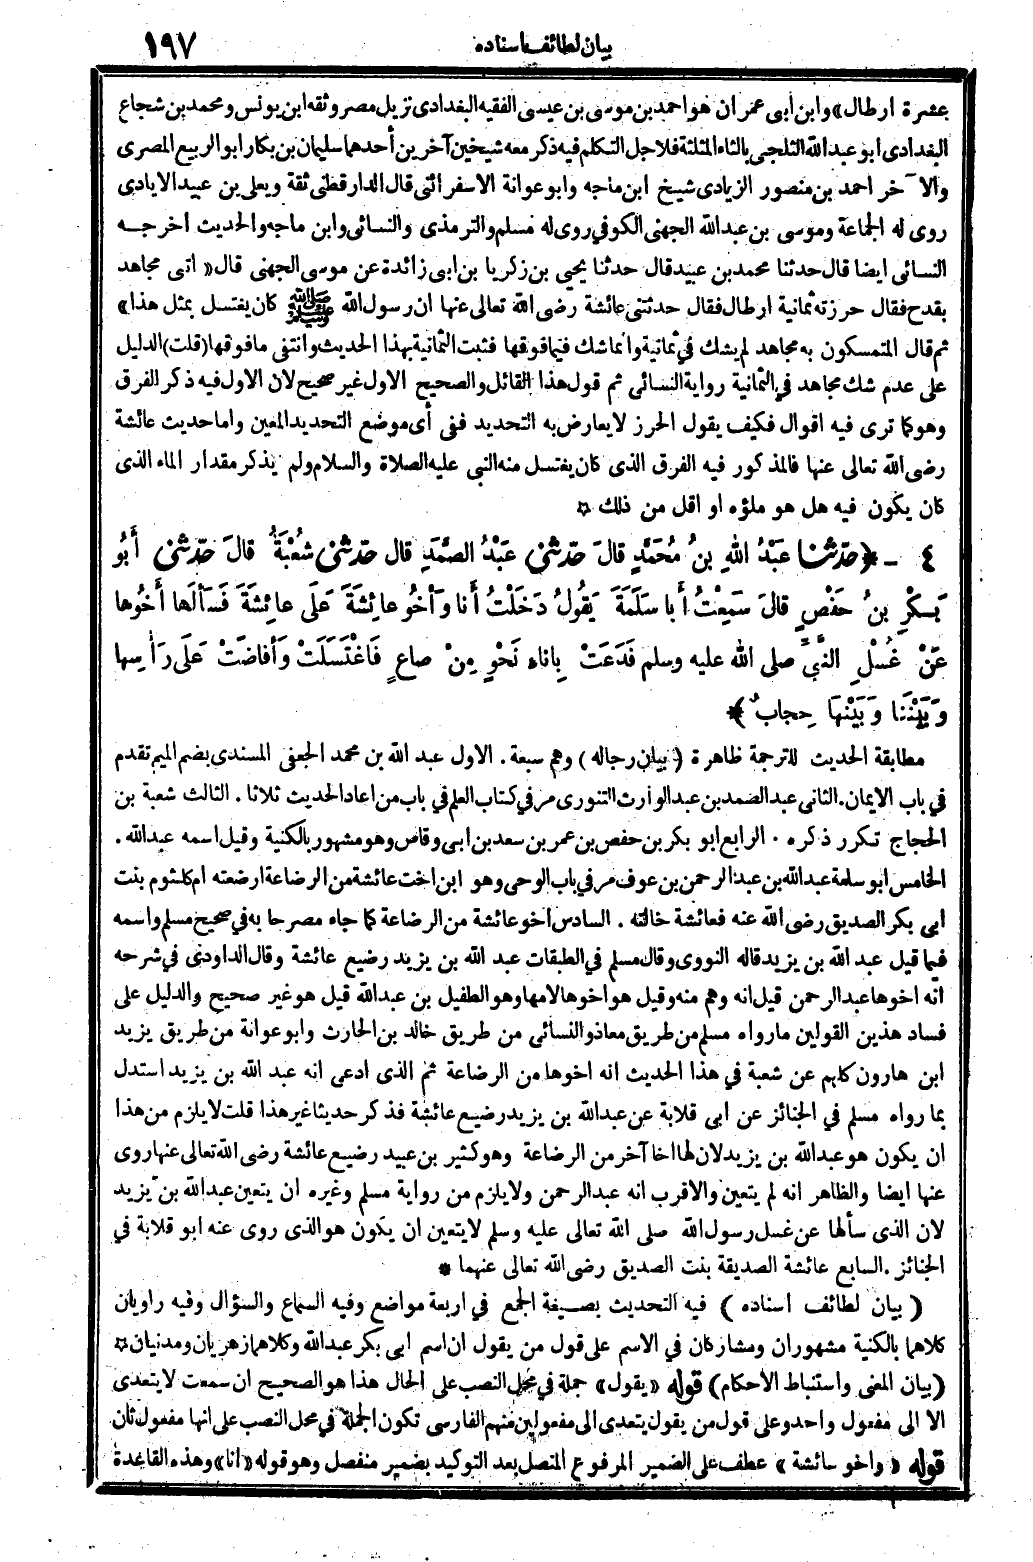 بيان لطائف اسناده ١٩٧
عشرة ارطال» وابن أبى عمران هو احمد بن موسى بن عيسى الفقيه البغدادى نزيل مصر وثقه ابن يونس ومحمد بن شجاع
البغدادى ابو عبدالله الثلجى بالثاء المثلثة فلاجل التكلم فيه ذكر معه شيخين آخرين أحدهما سليمان بن بكار ابو الربيع المصرى
والآخر احمد بن منصور الزيادى شيخ ابن ماجه وابو عوانة الاسفرائنى قال الدارقطنى ثقة ويعلى بن عبيد الايادى
روى له الجماعة وموسى بن عبدالله الجهنى الكوفي روى له مسلم والترمذى والنسائى وابن ماجه والحديث اخرجه
النسائى ايضا قال حدثنا محمد بن عبيد قال حدثنا يحيى بن زكريا بن ابى زائدة عن موسى الجهنى قال « أتى مجاهد
بقدح فقال حرزته ثمانية ارطال فقال حدثتنى عائشة رضى الله تعالى عنها ان رسول الله ﷺ كان يغتسل بمثل هذا »
ثم قال المتمسكون به مجاهد لم يشك في ثمانية وانما شك فيما فوقها فثبت الثمانية بهذا الحديث وانتفى ما فوقها (قلت) الدليل
على عدم شك مجاهد في الثمانية رواية النسائى ثم قول هذا القائل والصحيح الاول غير صحيح لان الاول فيه ذكر الفرق
وهو كما ترى فيه اقوال فكيف يقول الحرز لا يعارض به التحديد ففى أى موضع التحديد المعين واما حديث عائشة
رضى الله تعالى عنها فالمذكور فيه الفرق الذى كان يغتسل منه النبى عليه الصلاة والسلام ولم يذكر مقدار الماء الذى
كان يكون فيه هل هو ملؤه او اقل من ذلك ☆
٤ - ﴿ حدّثنا عَبْدُ اللهِ بنُ مُحَمَّدٍ قالَ حدّثنى عَبْدُ الصَّمَدِ قال حدّثنى شُعْبَةُ قالَ حدّثنى أَبُو
بَكْرِ بنُ حَفْصٍ قالَ سَمِعْتُ أَبا سَلَمَةَ يَقُولُ دَخَلْتُ أَنا وَأَخُو عائِشَةَ عَلَى عائِشَةَ فَسَأَلَها أَخُوها
عَنْ غُسْلِ النَّبِيِّ صلى الله عليه وسلم فَدَعَتْ بِاناءٍ نَحْوٍ مِنْ صاعٍ فَاغْتَسَلَتْ وَأَفاضَتْ عَلَى رَأْسِها
وَبَيْنَنَا وَبَيْنَهَا حِجابٌ ﴾
مطابقة الحديث للترجمة ظاهرة ( بيان رجاله ) وهم سبعة . الاول عبد الله بن محمد الجعفى المسندى بضم الميم تقدم
في باب الايمان . الثانى عبد الصمد بن عبد الوارث التنورى مر في كتاب العلم في باب من اعاد الحديث ثلاثا . الثالث شعبة بن
الحجاج تكرر ذكره . الرابع ابو بكر بن حفص بن عمر بن سعد بن ابى وقاص وهو مشهور بالكنية وقيل اسمه عبدالله .
الخامس ابو سلمة عبدالله بن عبد الرحمن بن عوف مر في باب الوحى وهو ابن اخت عائشة من الرضاعة ارضعته ام كلثوم بنت
ابى بكر الصديق رضى الله عنه فعائشة خالته . السادس اخو عائشة من الرضاعة كما جاء مصرحا به في صحيح مسلم واسمه
فيما قيل عبد الله بن يزيد قاله النووى وقال مسلم في الطبقات عبد الله بن يزيد رضيع عائشة وقال الداودى في شرحه
انه اخوها عبد الرحمن قيل انه وهم منه وقيل هو اخوها لامها وهو الطفيل بن عبدالله قيل هو غير صحيح والدليل على
فساد هذين القولين ما رواه مسلم من طريق معاذ والنسائى من طريق خالد بن الحارث وابو عوانة من طريق يزيد
ابن هارون كلهم عن شعبة في هذا الحديث انه اخوها من الرضاعة ثم الذى ادعى انه عبد الله بن يزيد استدل
بما رواه مسلم في الجنائز عن ابى قلابة عن عبدالله بن يزيد رضيع عائشة فذكر حديثا غير هذا قلت لا يلزم من هذا
ان يكون هو عبدالله بن يزيد لان لها اخا آخر من الرضاعة وهو كثير بن عبيد رضيع عائشة رضى الله تعالى عنها روى
عنها ايضا والظاهر انه لم يتعين والاقرب انه عبد الرحمن ولا يلزم من رواية مسلم وغيره ان يتعين عبدالله بن يزيد
لان الذى سألها عن غسل رسول الله صلى الله تعالى عليه وسلم لا يتعين ان يكون هو الذى روى عنه ابو قلابة في
الجنائز . السابع عائشة الصديقة بنت الصديق رضى الله تعالى عنهما *
( بيان لطائف اسناده ) فيه التحديث بصيغة الجمع في اربعة مواضع وفيه السماع والسؤال وفيه راويان
كلاهما بالكنية مشهوران ومشاركان في الاسم على قول من يقول ان اسم ابى بكر عبدالله وكلاهما زهريان ومدنيان ☆
(بيان المعنى واستنباط الأحكام) قوله « يقول » جملة في محل النصب على الحال هذا هو الصحيح ان سمعت لا يتعدى
الا الى مفعول واحد وعلى قول من يقول يتعدى الى مفعولين منهم الفارسى تكون الجملة في محل النصب على انها مفعول ثان
قوله « واخو عائشة » عطف على الضمير المرفوع المتصل بعد التوكيد بضمير منفصل وهو قوله « انا » وهذه القاعدة